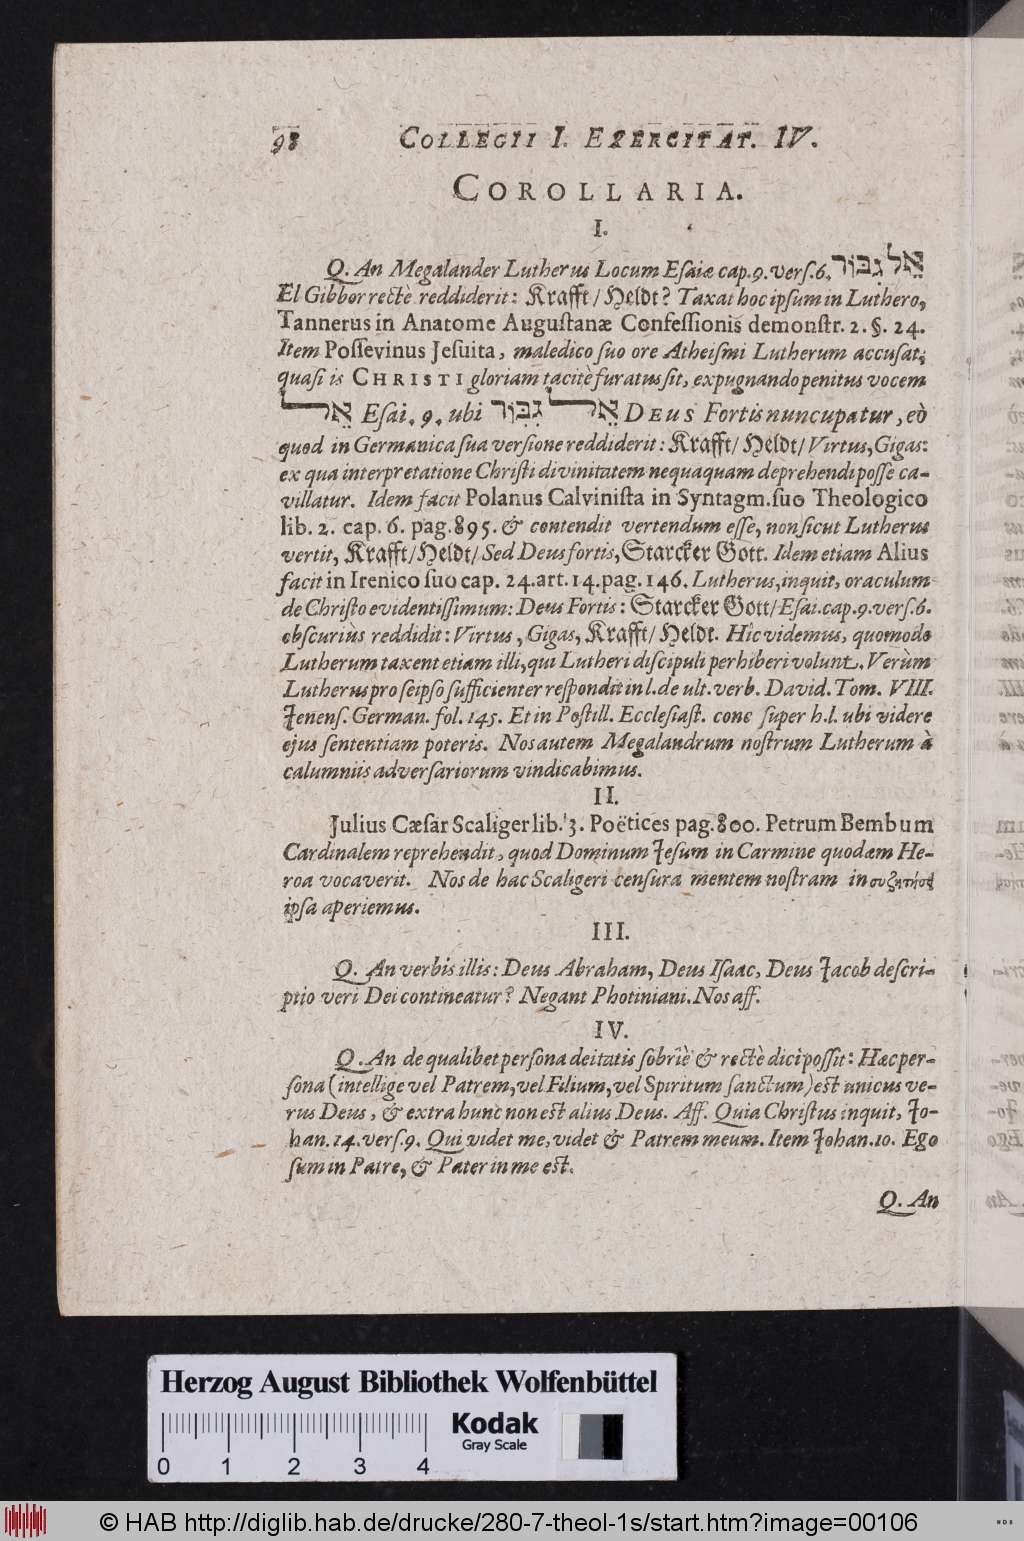 98 COLLEGII I. EXERCITAT. IV.
COROLLARIA.
I.
Q. An Megalander Lutherus Locum Esaiæ cap. 9. vers. 6. אֵל גִבּוֹר
El Gibbor rectè reddiderit: Krafft / Heldt? Taxat hoc ipsum in Luthero,
Tannerus in Anatome Augustanæ Confessionis demonstr. 2. §. 24.
Item Possevinus Jesuita, maledico suo ore Atheismi Lutherum accusat;
quasi is CHRISTI gloriam tacitè furatus sit, expugnando penitus vocem
אֵל Esai. 9. ubi אֵל גִבּוֹר DEUS Fortis nuncupatur, eò
quod in Germanica sua versione reddiderit: Krafft / Heldt / Virtus, Gigas:
ex qua interpretatione Christi divinitatem nequaquam deprehendi posse ca-
villatur. Idem facit Polanus Calvinista in Syntagm. suo Theologico
lib. 2. cap. 6. pag. 895. & contendit vertendum esse, non sicut Lutherus
vertit, Krafft / Heldt / Sed Deus fortis, Starcker Gott. Idem etiam Alius
facit in Irenico suo cap. 24. art. 14. pag. 146. Lutherus, inquit, oraculum
de Christo evidentissimum: Deus Fortis: Starcker Gott / Esai. cap. 9. vers. 6.
obscuriùs reddidit: Virtus, Gigas, Krafft / Heldt. Hîc videmus, quomodo
Lutherum taxent etiam illi, qui Lutheri discipuli perhiberi volunt. Verùm
Lutherus pro seipso sufficienter respondit in l. de ult. verb. David. Tom. VIII.
Jenens. German. fol. 145. Et in Postill. Ecclesiast. conc super h. l. ubi videre
ejus sententiam poteris. Nos autem Megalandrum nostrum Lutherum à
calumniis adversariorum vindicabimus.
II.
Julius Cæsar Scaliger lib. 3. Poëtices pag. 800. Petrum Bembum
Cardinalem reprehendit, quod Dominum Jesum in Carmine quodam He-
roa vocaverit. Nos de hac Scaligeri censura mentem nostram in συζητήσει
ipsa aperiemus.
III.
Q. An verbis illis: Deus Abraham, Deus Isaac, Deus Jacob descri-
ptio veri Dei contineatur? Negant Photiniani. Nos aff.
IV.
Q. An de qualibet persona deitatis sobriè & rectè dici possit: Hæc per-
sona (intellige vel Patrem, vel Filium, vel Spiritum sanctum) est unicus ve-
rus Deus, & extra hunc non est alius Deus. Aff. Quia Christus inquit, Jo-
han. 14. vers. 9. Qui videt me, videt & Patrem meum. Item Johan. 10. Ego
sum in Patre, & Pater in me est.
Q. An
Herzog August Bibliothek Wolfenbüttel
Kodak
Gray Scale
0 1 2 3 4
© HAB http://diglib.hab.de/drucke/280-7-theol-1s/start.htm?image=00106